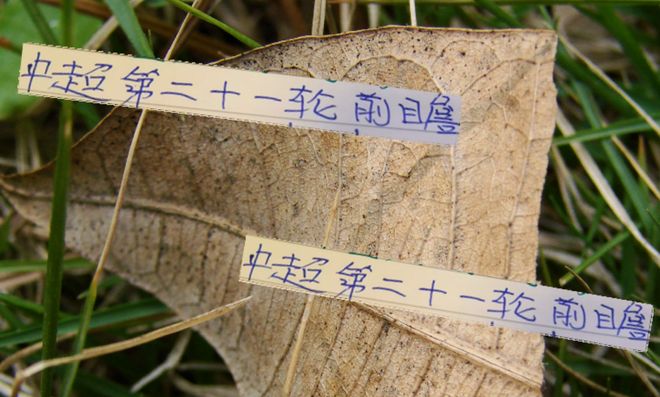 中超第二十一轮前瞻
中超第二十一轮前瞻